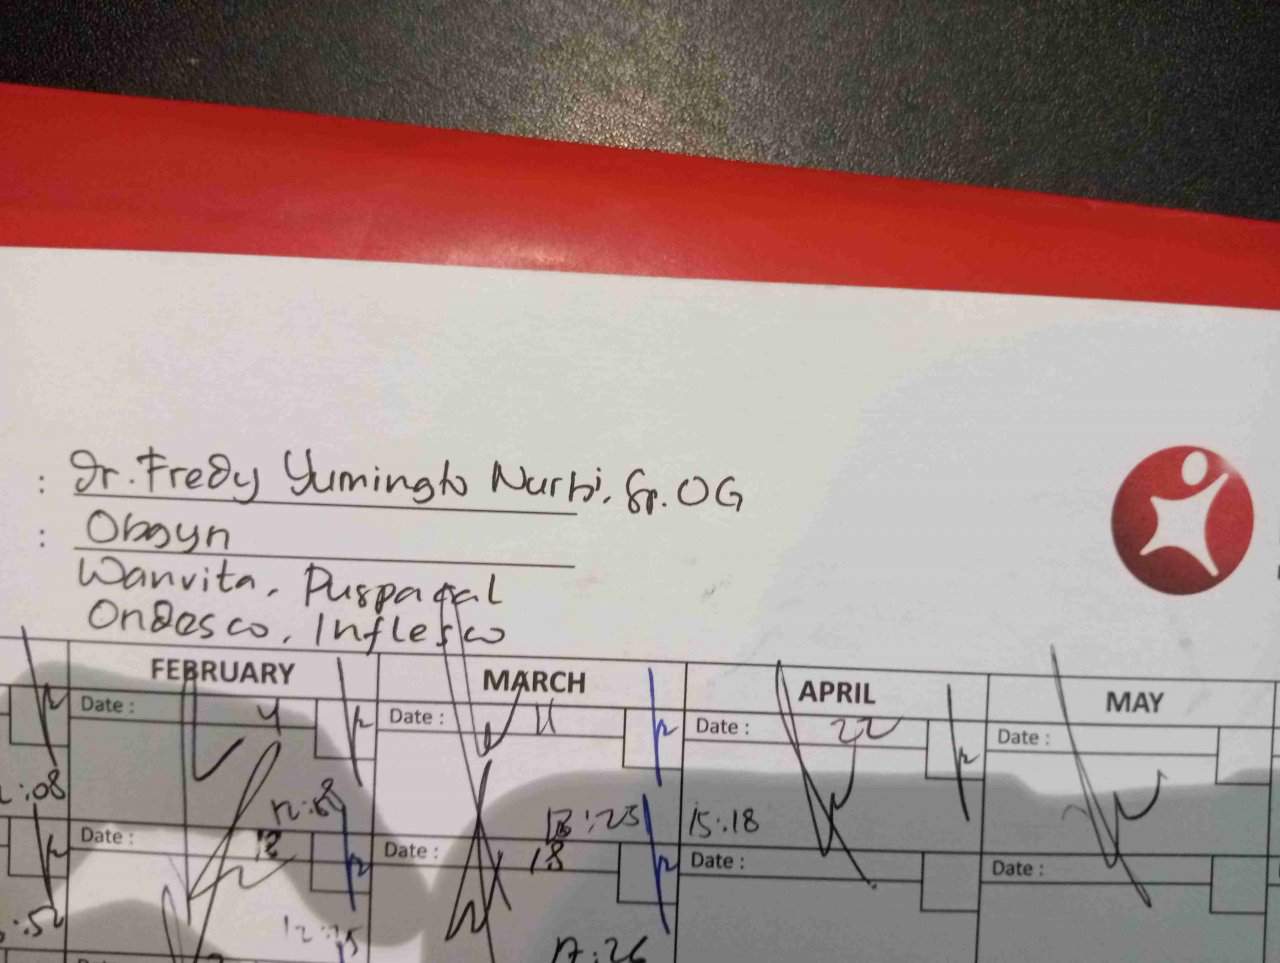 : Dr. Fredy Yumingto Nurbi, Sp.OG
: Obgyn
Wanvita, Puspagal
Ondasco, Inflesco
FEBRUARY MARCH APRIL MAY
Date : 4 Date : 11 Date : 22 Date :
:08 12:08 13:25 15:18
Date : 12 Date : 18 Date : Date :
:52 12:15 17:26